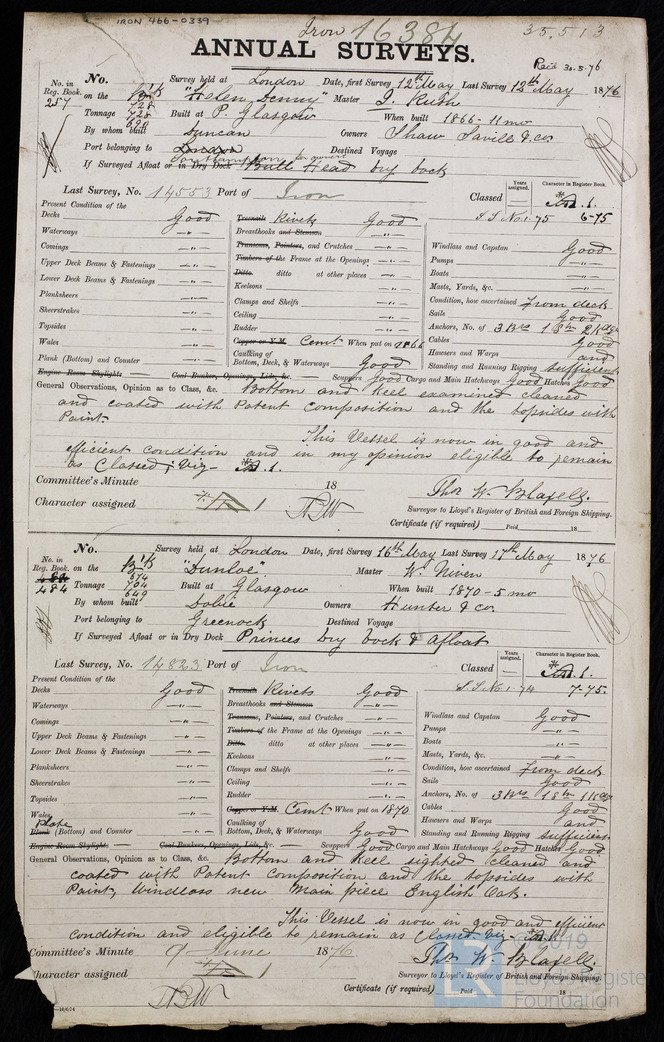 IRON 466-0339
Iron 16384
35,513
ANNUAL SURVEYS.
Rec'd 30.5.76
No. in Reg. Book. 257
No. Survey held at London Date, first Survey 12th May Last Survey 12th May 1876
on the Bk "Helen Denny" Master J. Ruth
Tonnage 728 728 690 Built at P. Glasgow When built 1866-11 mo
By whom built Duncan Owners Shaw Savill & Co.
Port belonging to London Southampton Destined Voyage
If Surveyed Afloat or in Dry Dock Bull Head Dry Dock
Last Survey, No. 14553 Port of Iron
Classed
Years assigned.
Character in Register Book.
A.1.
S.S. No.1-75 6-75
Present Condition of the
Decks Good
Waterways —"—
Comings —"—
Upper Deck Beams & Fastenings —"—
Lower Deck Beams & Fastenings —"—
Planksheers —"—
Sheerstrakes —"—
Topsides —"—
Wales —"—
Plank (Bottom) and Counter —"—
Engine Room Skylights
Treenails Rivets Good
Breasthooks and Stemson —"—
Transoms, Pointers, and Crutches —"—
Timbers of the Frame at the Openings —"—
Ditto. ditto at other places —"—
Keelsons —"—
Clamps and Shelfs —"—
Ceiling —"—
Rudder —"—
Copper or Y.M. Cemt When put on 1866
Caulking of Bottom, Deck, & Waterways Good
Coal Bunker, Openings, Lids, &c.
Windlass and Capstan Good
Pumps —"—
Boats —"—
Masts, Yards, &c. —"—
Condition, how ascertained From deck
Sails Good
Anchors, No. of 3 Brs 1 Sm 2 Kdgs
Cables Good
Hawsers and Warps and
Standing and Running Rigging sufficient
Scuppers Good Cargo and Main Hatchways Good Hatches Good
General Observations, Opinion as to Class, &c. Bottom and Keel examined cleaned
and coated with Patent Composition and the topsides with
Paint.
This Vessel is now in good and
efficient condition and in my opinion eligible to remain
as Classed; Viz— A.1.
Committee's Minute 18
Thos W. Blaxell.
Character assigned A 1
Surveyor to Lloyd's Register of British and Foreign Shipping.
Certificate (if required) Paid 18
No. in Reg. Book. 484 484
No. Survey held at London Date, first Survey 16th May Last Survey 17th May 1876
on the Bk "Dunloe" Master W. Niven
Tonnage 674 704 649 Built at Glasgow When built 1870-5 mo
By whom built Dobie Owners Hunter & Co.
Port belonging to Greenock Destined Voyage
If Surveyed Afloat or in Dry Dock Princes Dry Dock & Afloat
Last Survey, No. 14823 Port of Iron
Classed
Years assigned.
Character in Register Book.
A.1.
S.S. No.1-74 7-75.
Present Condition of the
Decks Good
Waterways —"—
Comings —"—
Upper Deck Beams & Fastenings —"—
Lower Deck Beams & Fastenings —"—
Planksheers —"—
Sheerstrakes —"—
Topsides —"—
Wales —"—
Plate
Plank (Bottom) and Counter —"—
Engine Room Skylights
Treenails Rivets Good
Breasthooks and Stemson —"—
Transoms, Pointers, and Crutches —"—
Timbers of the Frame at the Openings —"—
Ditto. ditto at other places —"—
Keelsons —"—
Clamps and Shelfs —"—
Ceiling —"—
Rudder —"—
Copper or Y.M. Cemt When put on 1870
Caulking of Bottom, Deck, & Waterways Good
Coal Bunkers, Openings, Lids, &c.
Windlass and Capstan Good
Pumps —"—
Boats —"—
Masts, Yards, &c. —"—
Condition, how ascertained From deck
Sails Good
Anchors, No. of 3 Brs 1 Sm 1 Kdge
Cables Good
Hawsers and Warps and
Standing and Running Rigging sufficient
Scuppers Good Cargo and Main Hatchways Good Hatches Good
General Observations, Opinion as to Class, &c. Bottom and Keel sighted cleaned and
coated with Patent Composition and the topsides with
Paint, Windlass new Main piece English Oak.
This Vessel is now in good and efficient
condition and eligible to remain as Classed, Viz A.1.
Committee's Minute 9 June 1876
Thos W. Blaxell.
Character assigned A 1
Surveyor to Lloyd's Register of British and Foreign Shipping.
Certificate (if required) Paid 18
2019
Lloyd's Register
Foundation